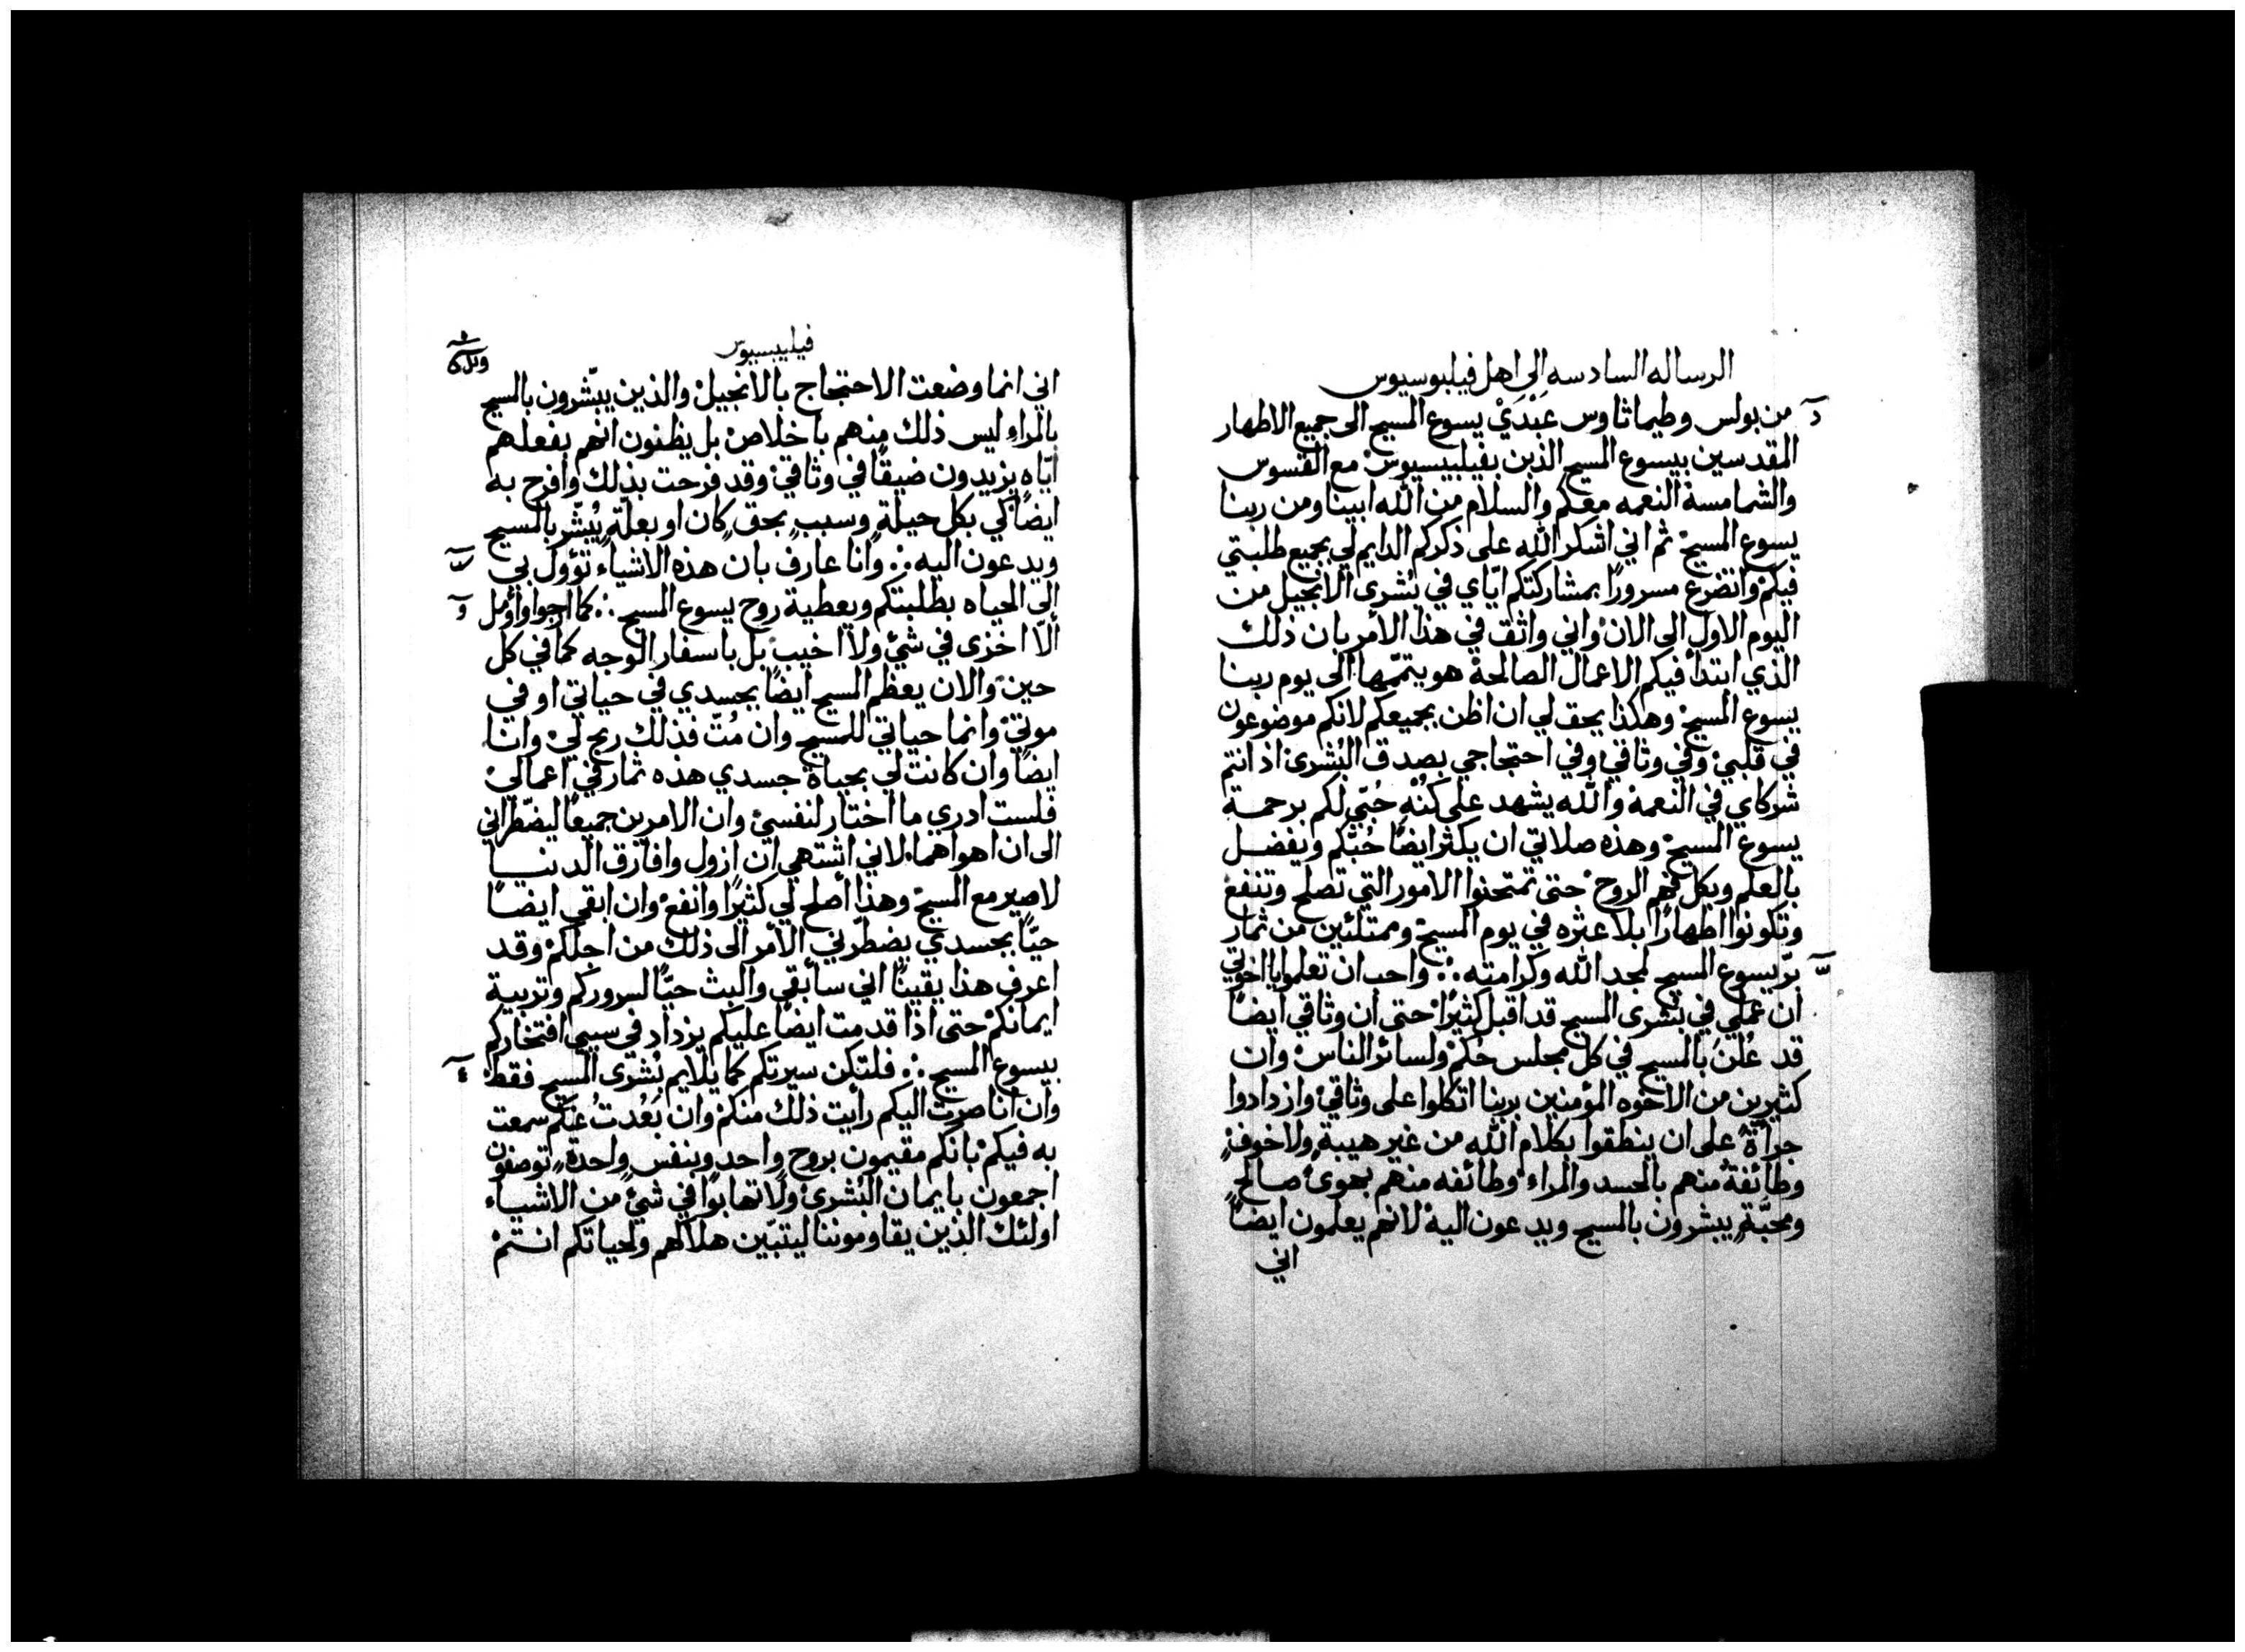 الرساله السادسه الى اهل فيليبوسيوس
من بولس وطيماثاوس عَبْدَيْ يسوع المسيح الى جميع الاطهار
المقدسين بيسوع المسيح الذين بفيليبسيوس مع القسوس
والشمامسة النعمه معكم والسلام من الله ابينا ومن ربنا
يسوع المسيح ثم اني اشكر الله على ذكركم الدايم لي بجميع طلبتي
فيكم واتضرع مسرورًا بمشاركتكم ايّاي في بُشرى الانجيل من
اليوم الاول الى الان واني واثق في هذا الامر بان ذلك
الذي ابتدأ فيكم الاعمال الصالحة هو يتمّمها الى يوم ربنا
يسوع المسيح وهكذا يحق لي ان اظن بجميعكم لانكم موضوعون
في قلبي وفي وثاقي وفي احتجاجي بصدق البُشرى اذ انتم
شركاي في النعمة والله يشهد على كُنْهِ حُبّي لكم برحمة
يسوع المسيح وهذه صلاتي ان يكثر ايضًا حُبّكم ويفضل
بالعلم وبكل فهم الروح حتى تمتحنوا الامور التي تصلح وتنفع
وتكونوا اطهارًا بلا عثره في يوم المسيح وممتلئين من ثمار
برّ يسوع المسيح لمجد الله وكرامته ∴ واحب ان تعلموا يا اخوتي
ان عملي في بُشرى المسيح قد اقبل كثيرًا حتى ان وثاقي ايضًا
قد عُلنَ بالمسيح في كل مجلس حُكم ولسائر الناس وان
كثيرين من الاخوه المؤمنين بربنا اتكلوا على وثاقي وازدادوا
جراةً على ان ينطقوا بكلام الله من غير هيبةٍ ولا خوفٍ
وطائفةٌ منهم بالحسد والمراء وطائفه منهم بهوى صالحٍ
ومحبّةٍ يبشرون بالمسيح ويدعون اليه لانهم يعلمون ايضًا
اني
فيليبسيوس
اني انما وضعت الاحتجاج بالانجيل والذين يبّشرون بالمسيح
بالمراء ليس ذلك منهم باخلاص بل يظنون انهم بفعلهم
ايّاه يزيدون ضيقًا في وثاقي وقد فرحت بذلك وافرح به
ايضًا كي بكل حيلةٍ وسببٍ بحقٍ كان او بعلّةٍ يُبّشر بالمسيح
ويدعون اليه ∴ وانا عارف بان هذه الاشياء تؤول بي
الى الحياه بطلبتكم وبعطية روح يسوع المسيح ∴ كما ارجوا واؤمل
ألّا اخزى في شئ ولا اخيب بل باسفار الوجه كما في كل
حين والان يعظم المسيح ايضًا بجسدي في حياتي او في
موتي وانما حياتي للمسيح وان مُتّ فذلك ربح لي وانا
ايضًا وان كانت لي بحياة جسدي هذه ثمار في اعمالي
فلست ادري ما اختار لنفسي وان الامرين جميعًا ليضطراني
الى ان اهواهما لاني اشتهي ان ازول وافارق الدنيا
لاصير مع المسيح وهذا أصلح لي كثيرًا وانفع وان ابقى ايضًا
حيًّا بجسدي يضطرّني الامر الى ذلك من اجلكم وقد
اعرف هذا يقينًا اني سأبقى والبث حيًّا لسروركم وتربية
ايمانكم حتى اذا قدمت ايضًا عليكم يزداد في سببي افتخاركم
بيسوع المسيح ∴ فلتكن سيرتكم كما يلايم بُشرى المسيح فقط
وان انا صرت اليكم رأيت ذلك منكم وان بَعُدتُ عنكم سمعت
به فيكم بانكم مقيمون بروح واحدٍ وبنفسٍ واحدةٍ توصفون
اجمعون بايمان البُشرى ولا تهابوا في شئ من الاشياء
اولئك الذين يقاوموننا ليتبّين هلاكهم ولحياتكم انتم